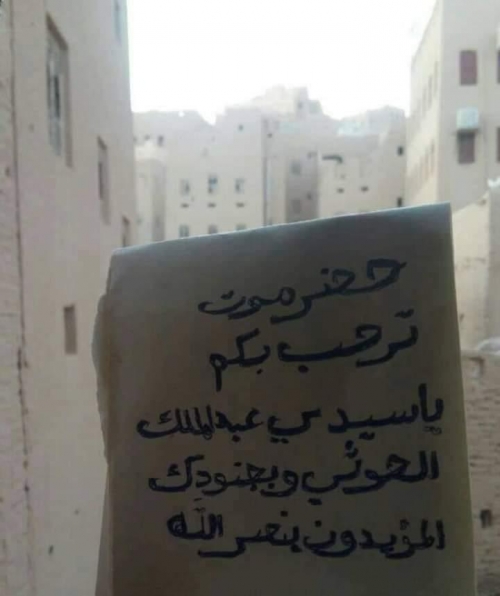 حضرموت
ترحب بكم
ياسيدي عبدالملك
الحوثي وبجنودك
المؤيدون بنصر الله